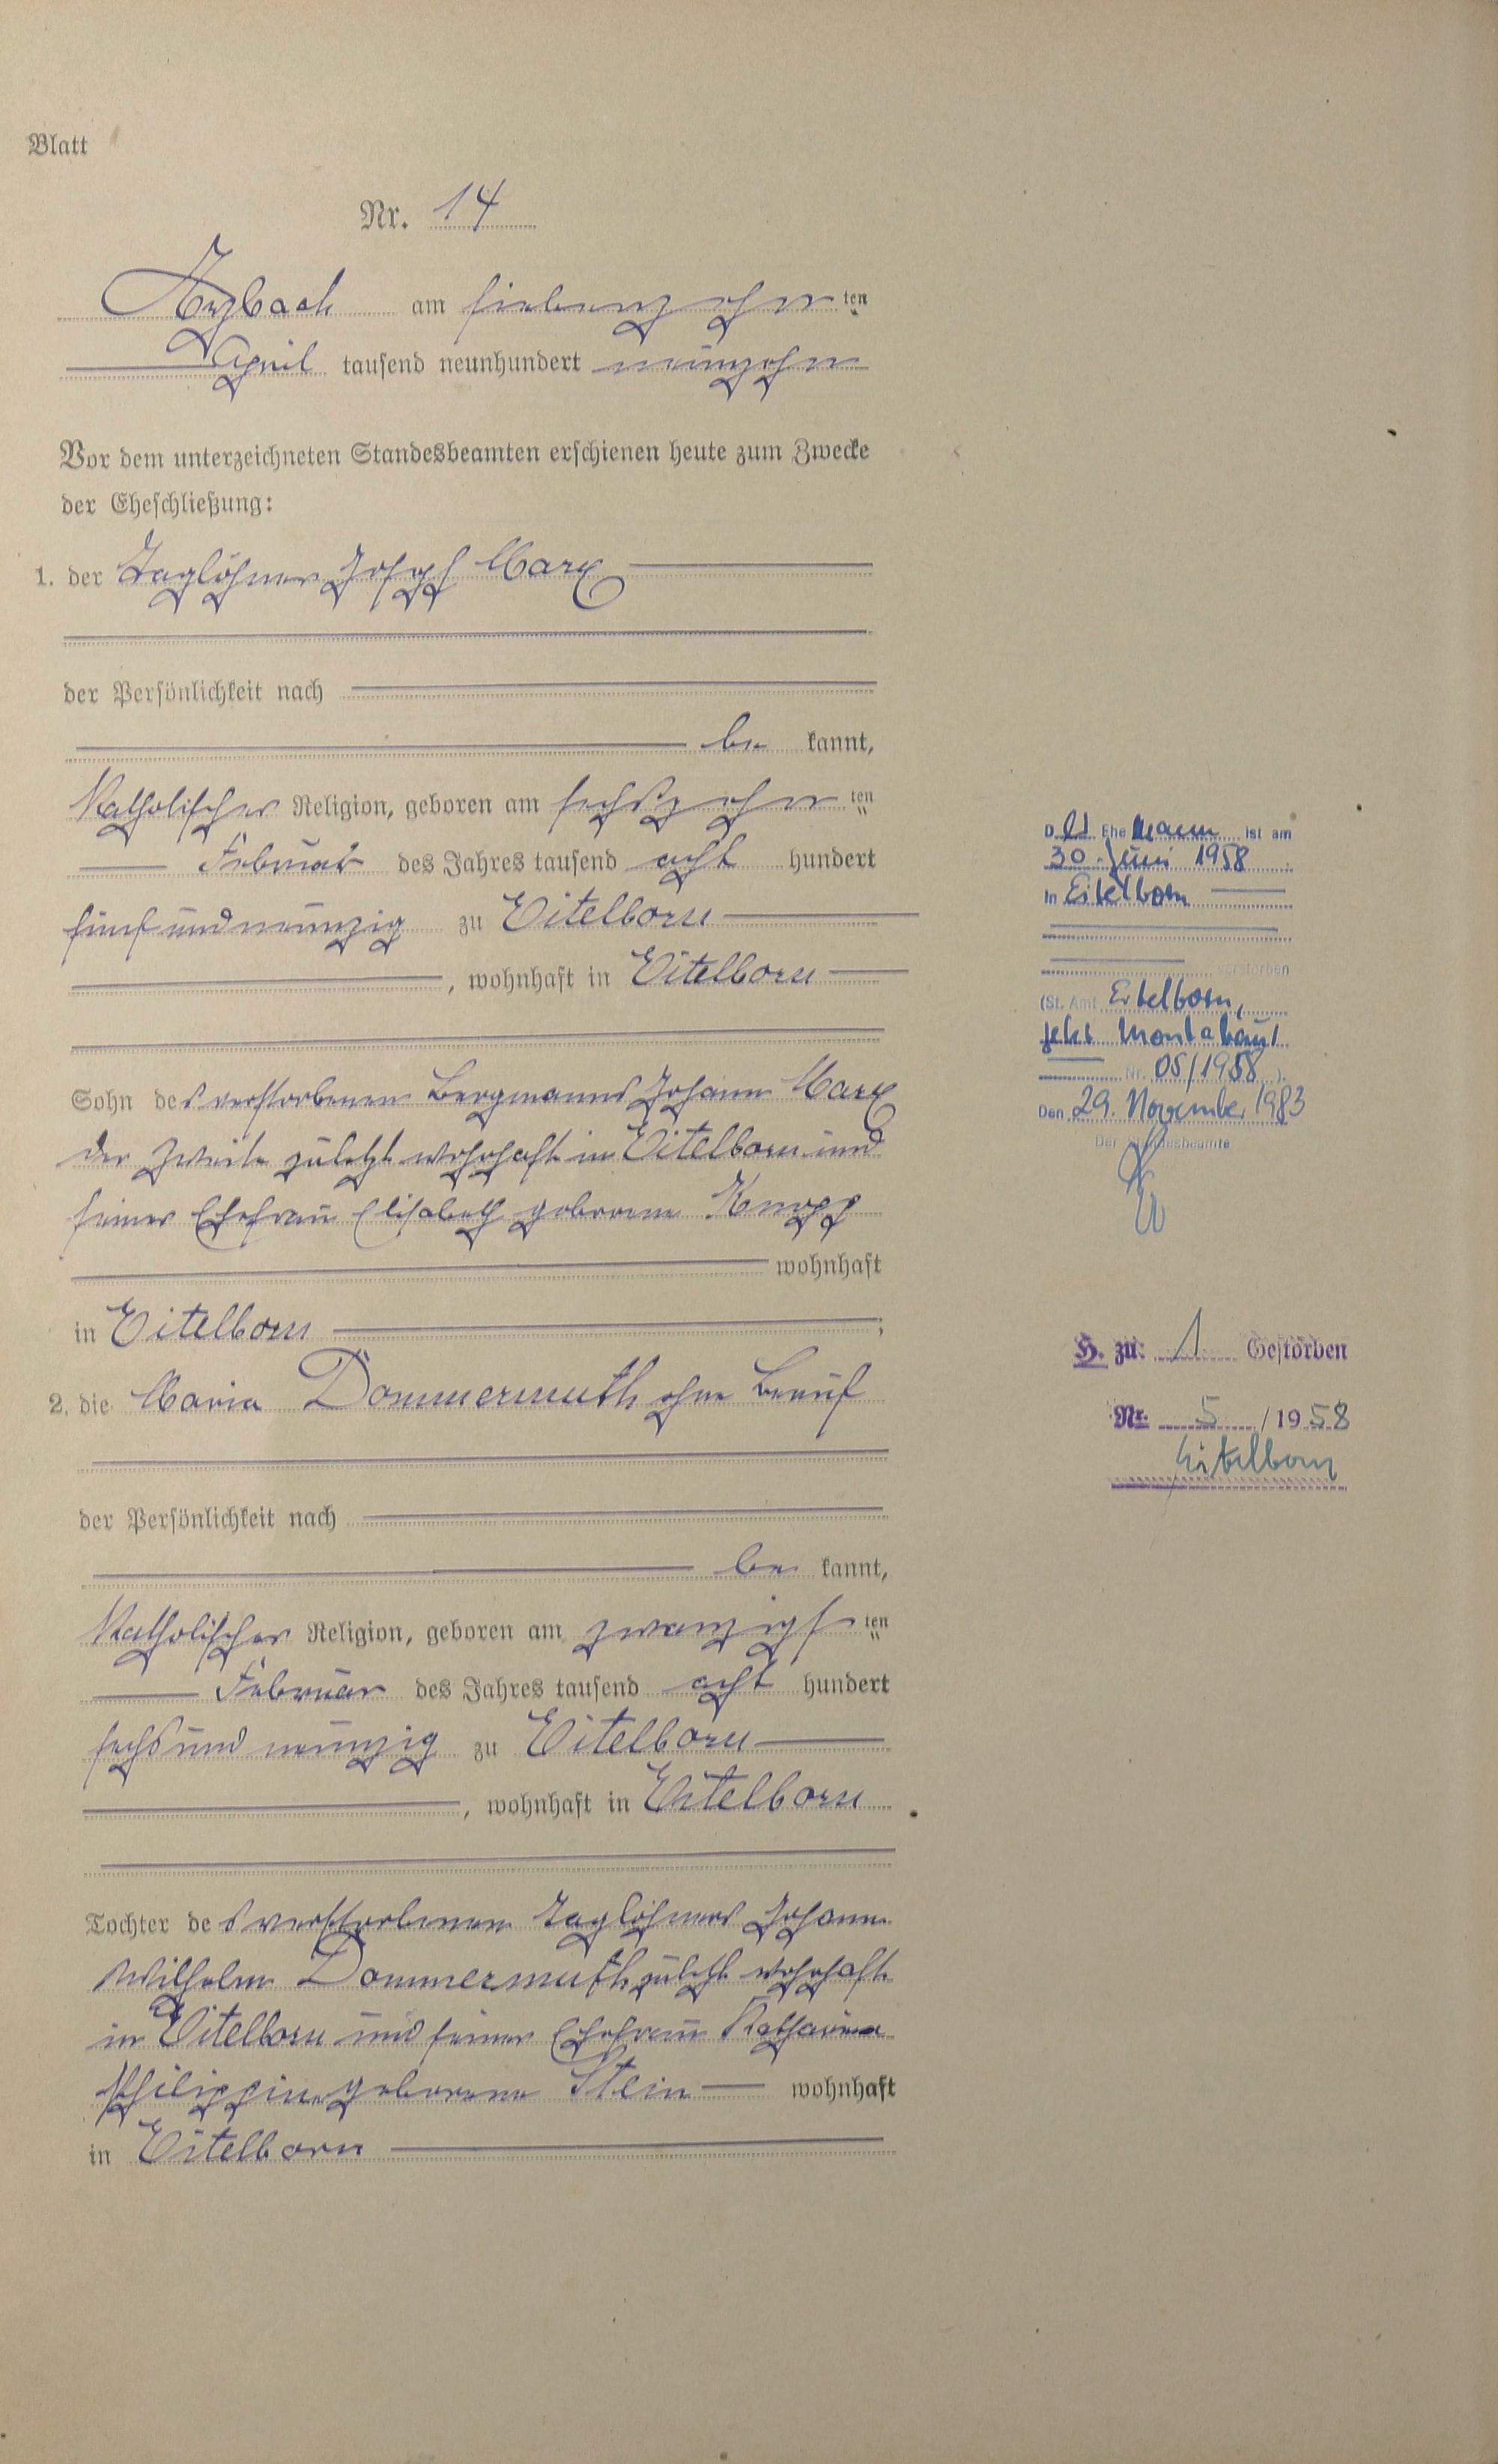 Blatt
Nr. 14
Arzbach am siebenzehnten
April tausend neunhundert neunzehn
Vor dem unterzeichneten Standesbeamten erschienen heute zum Zwecke
der Eheschließung:
1. der Taglöhner Josef Marx
der Persönlichkeit nach
be kannt,
Katholischer Religion, geboren am sechszehnten
Februar des Jahres tausend acht hundert
fünf und neunzig zu Eitelborn
, wohnhaft in Eitelborn
Sohn des verstorbenen Bergmanns Johann Marx
der Zweite zuletzt wohnhaft in Eitelborn und
seiner Ehefrau Elisabeth geborene Knopp
wohnhaft
in Eitelborn ;
2. die Maria Dommermuth ohne Beruf
der Persönlichkeit nach
be kannt,
Katholischer Religion, geboren am zwanzigsten
Februar des Jahres tausend acht hundert
sechs und neunzig zu Eitelborn
, wohnhaft in Eitelborn
Tochter des verstorbenen Taglöhners Johann
Wilhelm Dommermuth zuletzt wohnhaft
in Eitelborn und seiner Ehefrau Katharina
Philippine geborene Stein wohnhaft
in Eitelborn
Der Ehemann ist am
30. Juni 1958
in Eitelborn
verstorben
(St. Amt Eitelborn,
jetzt Montabaur
Nr. 05/1958 ).
Den 29. November 1983
Der Standesbeamte
H. zu: 1 Gestorben
Nr. 5 / 1958
Eitelborn